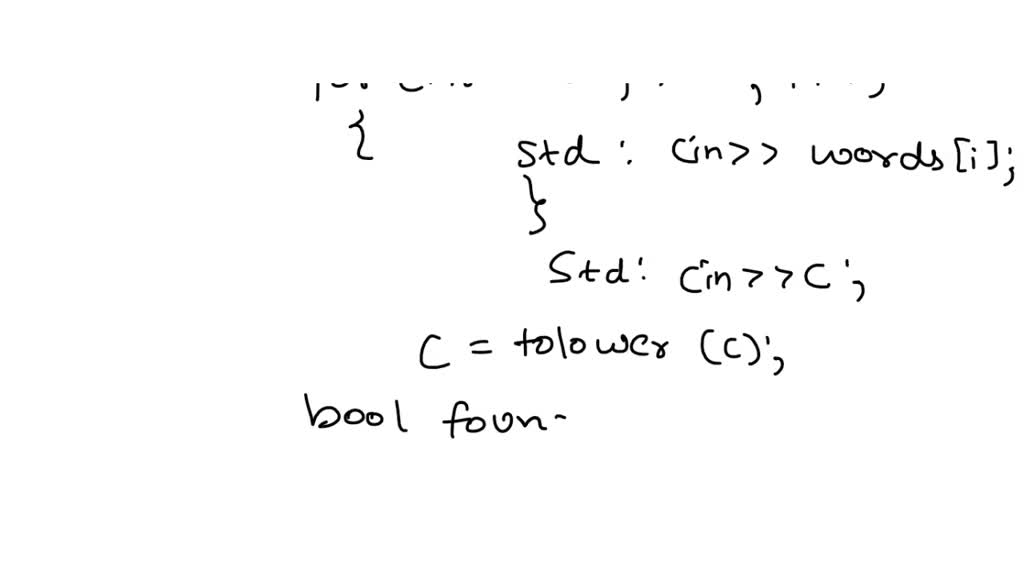 {
std : cin>> words[i];
}
Std: cin>>C;
C = tolower (c);
bool foun